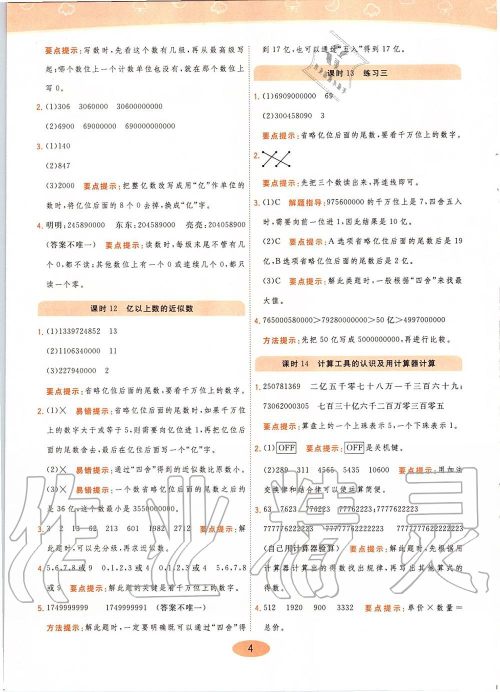 要点提示:写数时,先看这个数有几级,再从最高级写
起;哪个数位上一个计数单位也没有,就在哪个数位上
写0。
1.(1)306 3060000 30600000000
(2)6900 69000000 690000000000
3.(1)140
(2)847
(3)2000 要点提示:把整亿数改写成用“亿”作单位的
数时,将亿位后面的8个0去掉,换成“亿”字。
4.明明:245890000 东东:204058900 亮亮:204058900
(答案不唯一) 要点提示:读数时,每级末尾不管有几
个0,都不读;其他数位上有一个0或连续几个0,都只
读一个零。
课时12 亿以上数的近似数
1.(1)1339724852 13
(2)1106340000 11
(3)227940000 2
要点提示:省略亿位后面的尾数,要看千万位上的数字。
2.(1)× 易错提示:省略亿位后面的尾数时,如果千万位
上的数字大于或等于5,则需要向亿位进1,再把亿位后
面的尾数舍去,最后在亿位后面写一个“亿”字。
(2)× 易错提示:通过“四舍”得到的近似数比原数小。
(3)× 易错提示:一个数省略亿位后面的尾数之后约
是36亿,这个数最小是3550000000。
3. 3 2 13 62 213 601 1982 2712 要点提示:解
此题时,可以先分级,再求近似数。
4. 5,6,7,8或9 0,1,2,3或4 0,1,2,3或4 5,6,7,8
或9 要点提示:解此题的关键是看千万位上的数字。
5. 1749999999 17499999991 (答案不唯一)
方法提示:解此题时,一定要明确既可以通过“四舍”得
到17亿,也可以通过“五入”得到17亿。
课时13 练习三
1.(1)6909000000 69
(2)300458090 3
要点提示:省略亿位后面的尾数,要看千万位上的数字。
2.
要点提示:先把三个数读出来,再连线即可。
3.(1)C 解题指导:975600000的千万位上是7,四舍五入
时,需要向前一位进1,因此结果是10亿。
(2)C 要点提示:A选项省略亿位后面的尾数后是19
亿,B选项省略亿位后面的尾数后是2亿。
(3)C 要点提示:解此类题时,一般根据“四舍”来找最
大值。
4. 765000580000>79280000000>50亿>4997000000
方法提示:先把50亿写成5000000000,再进行比较。
课时14 计算工具的认识及用计算器计算
1. 250781369 二亿五千零七十八万一千三百六十九;
73062000305 七百三十亿六千二百万零三百零五
要点提示:算盘上的一个上珠表示5,一个下珠表示1。
2.(1)OFF 要点提示:OFF是关机键。
(2)289 311 4565 5435 10600 要点提示:用加法
交换律和结合律可以使运算简便。
3. 63 7623 776223 77762223; 7777622223
777776222223 77777762222223 7777777622222223
(自己用计算器验算) 要点提示:解此题时,先根据用
计算器计算出的得数找出规律,再写出其他算式的
得数。
4. 512 1920 900 3332 要点提示:单价×数量=
总价。
4
作业精灵